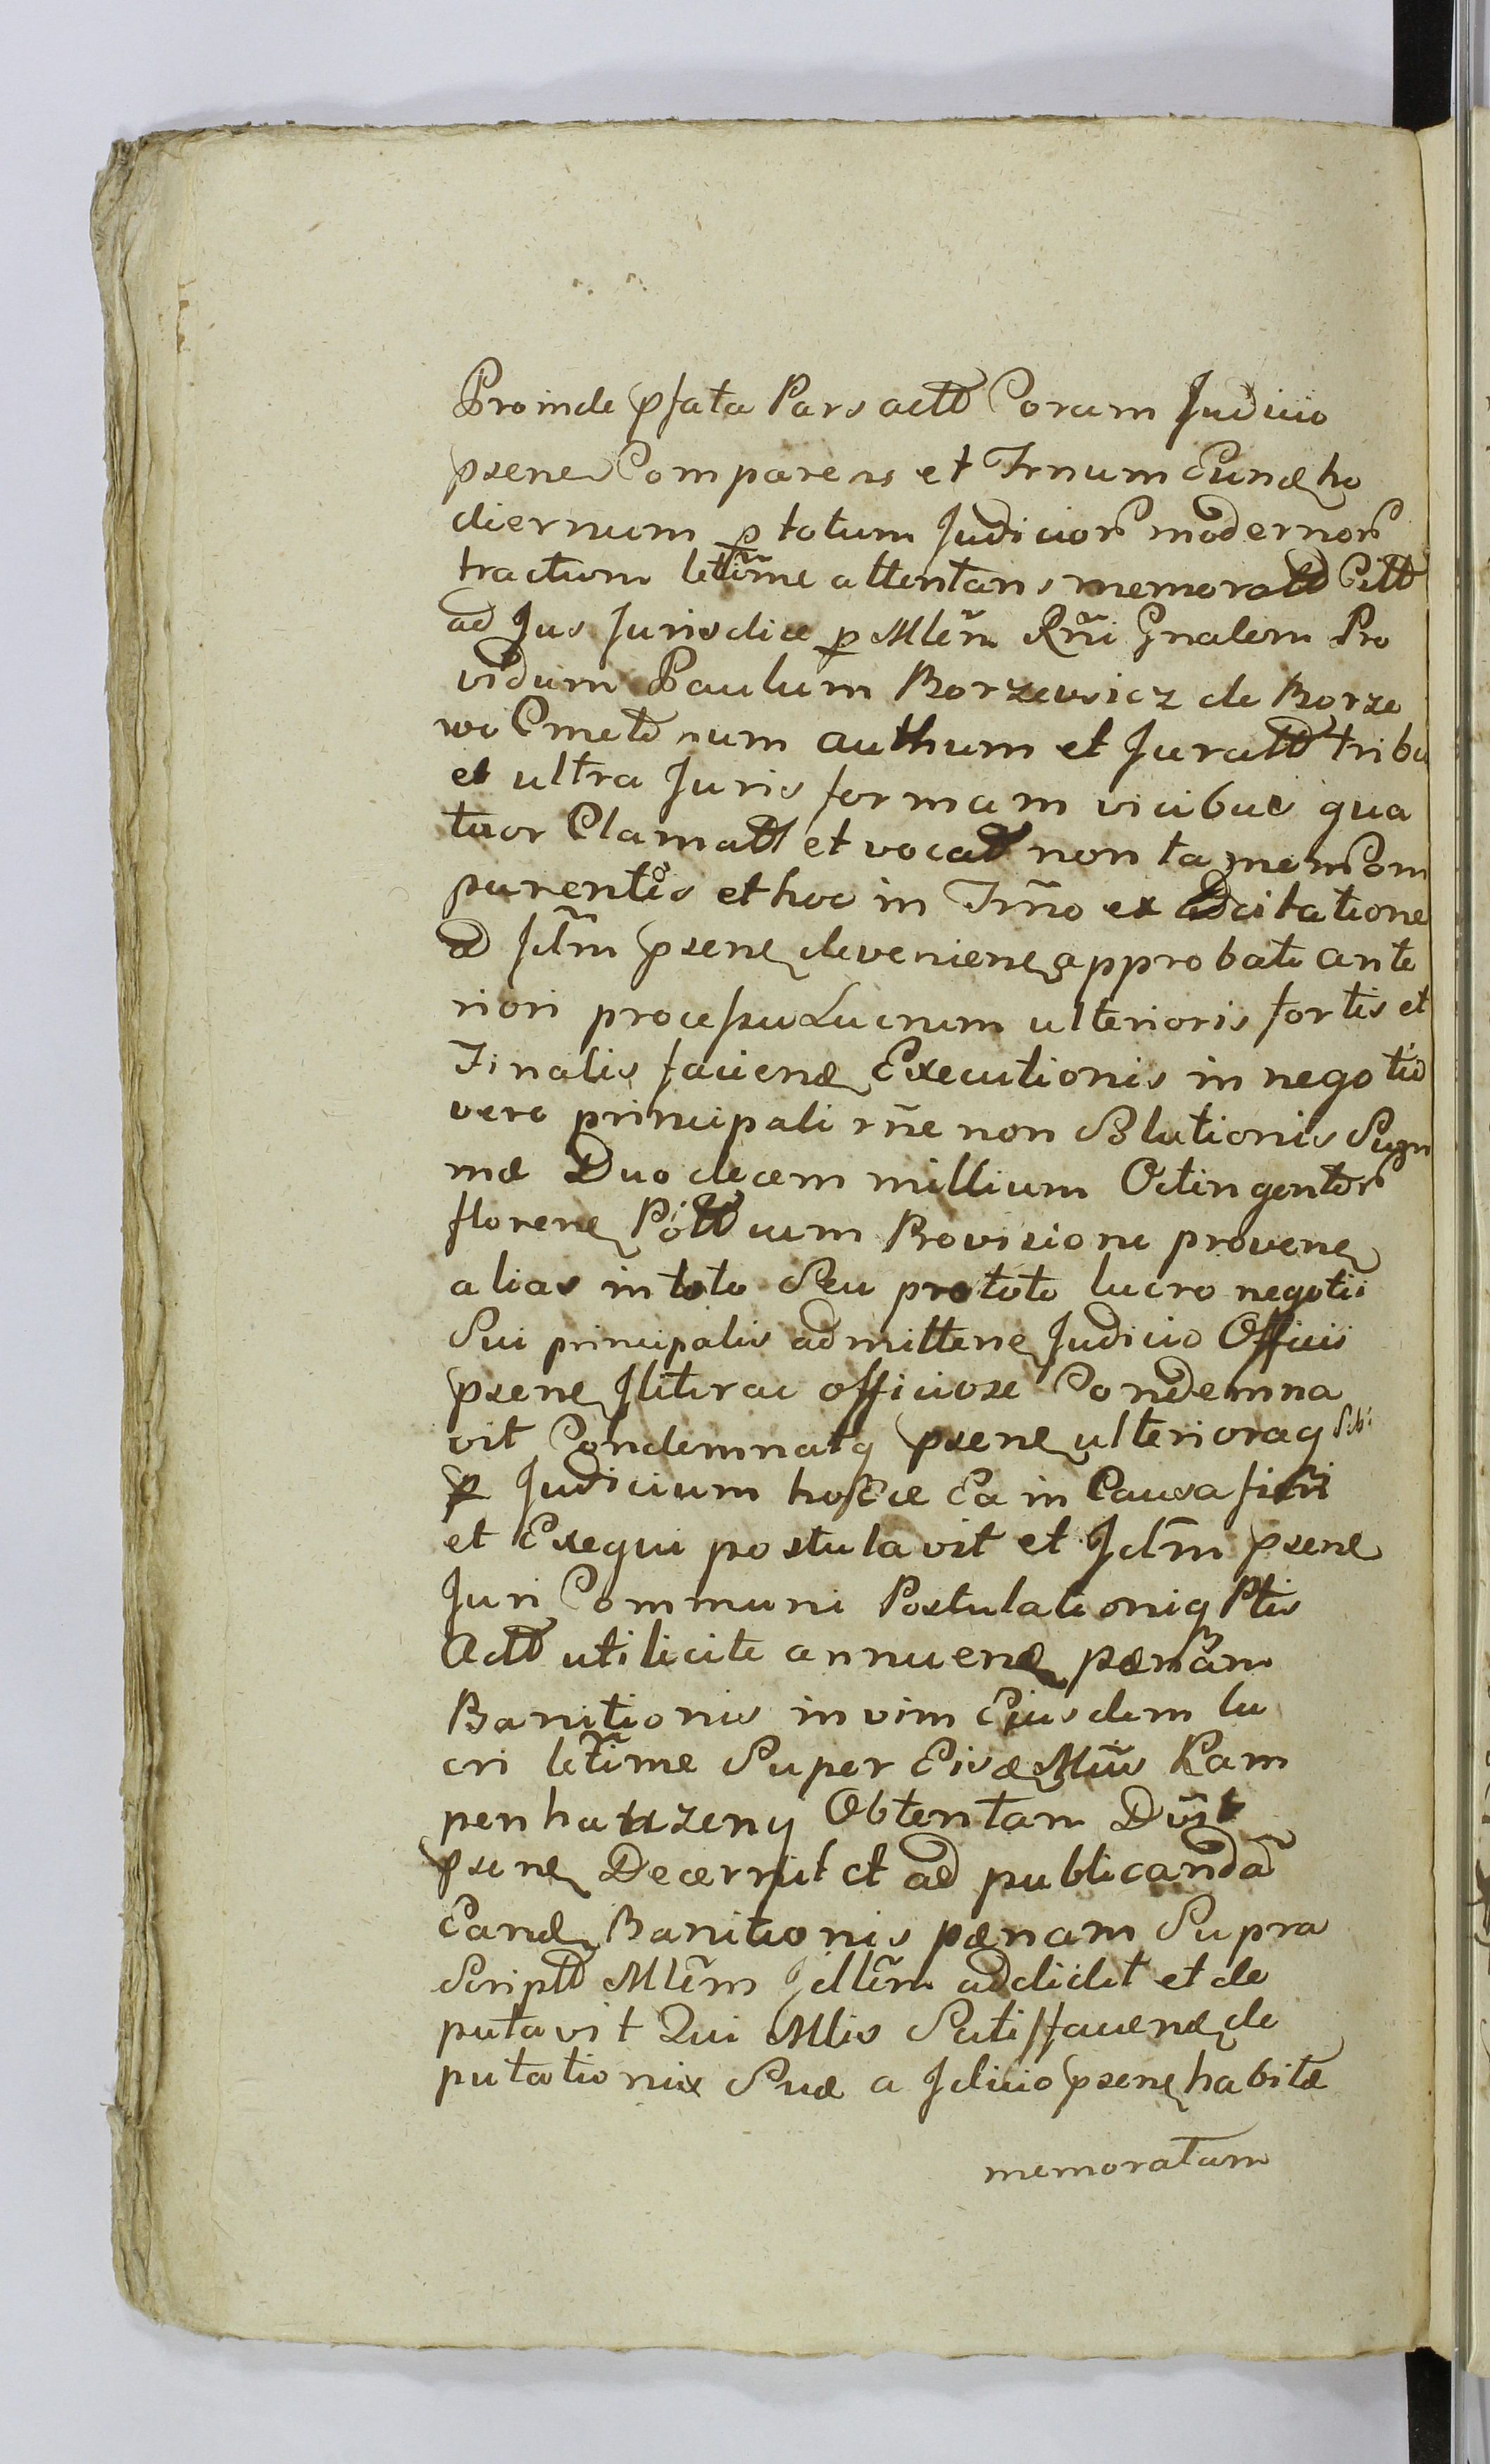 Proinde pfata Pars actt Coram Judicio
psene Comparens et Trnum Eund ho
diernum p totum Judicior modernor
tractum letime attentans memoratt Citt
ad Jus Jurisdice p Mlem Rni Gnalem Pro
vidum Paulum Borzewicz de Borze
wo Cmeto num authum et Juratt tribu
et ultra Juris formam vicibus qua
tuor Clamatt et vocatt non tamen Com
parentis et hoc in Trno ex adcitatione
ad Jctm psene deveniene approbato ante
riori processu Lucrum ulterioris fortis et
Finalis faciend Executionis in negotio
vero principali rne non Solutionis Sum
mæ Duodecem millium Octingentor
florene Pott cum Provisione provene
alias in toto Seu pro toto lucro negotii
Sui principalis admittene Judicio Officii
psene Jliterac officiose Condemna
vit Condemnatq psene ulterioraq sibi
p Judicium hosce Ea in Causa fieri
et Exequi postulavit et Jctm psene
Juri Communi Postulationiq Ptis
Actt utilicite annuend pænam
Banitionis in vim Ejusdem lu
cri letime Super Eisd Mcis Kam
penhauzeny Obtentam Duxit
psene Decernit et ad publicandã
Eand Banitionis pænam Supra
Scriptt Mlem Jdlem addidit et de
putavit Qui Mlis Satisfaciend de
putationix Suæ a Jdicio psene habitæ
memoratam